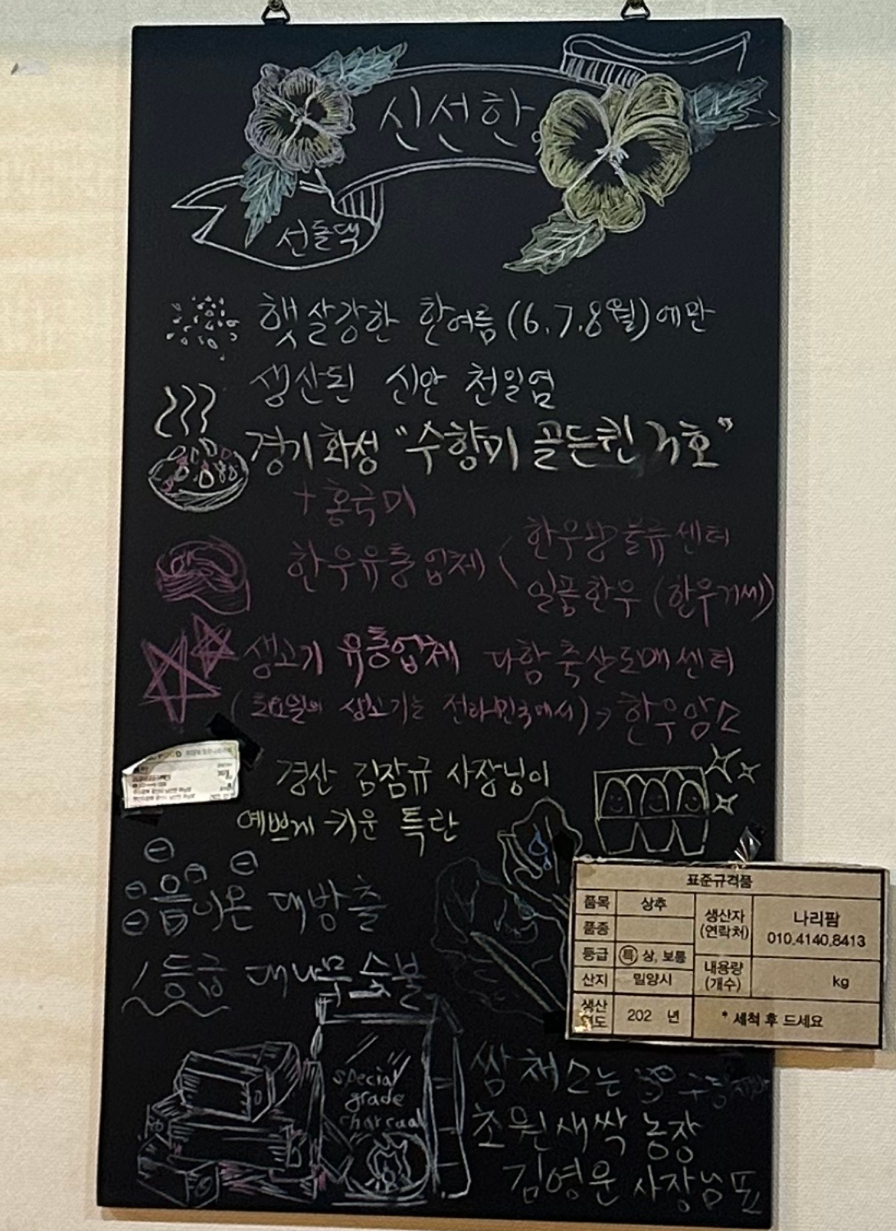 신선한
선돌댁
햇살강한 한여름(6.7.8월)에만
생산된 신안 천일염
경기화성 "수향미 골든퀸 3호"
+홍국미
한우유통업체
한우왕물류센터
일품한우 (한우거세)
생고기 유통업체 다함축산도매센터
(토요일의 생고기는 전라민국에서) → 한우암소
경산 김잠규 사장님이
예쁘게 키운 특란
음이온 대방출
1등급 대나무숯불
special
grade
charcoal
표준규격품
품목 상추
품종
등급 특 상, 보통
산지 밀양시
생산
202 년
생산자
(연락처)
나리팜
010.4140.8413
내용량
(개수)
kg
* 세척 후 드세요
쌈채소는
초원새싹 농장
김영운 사장님표